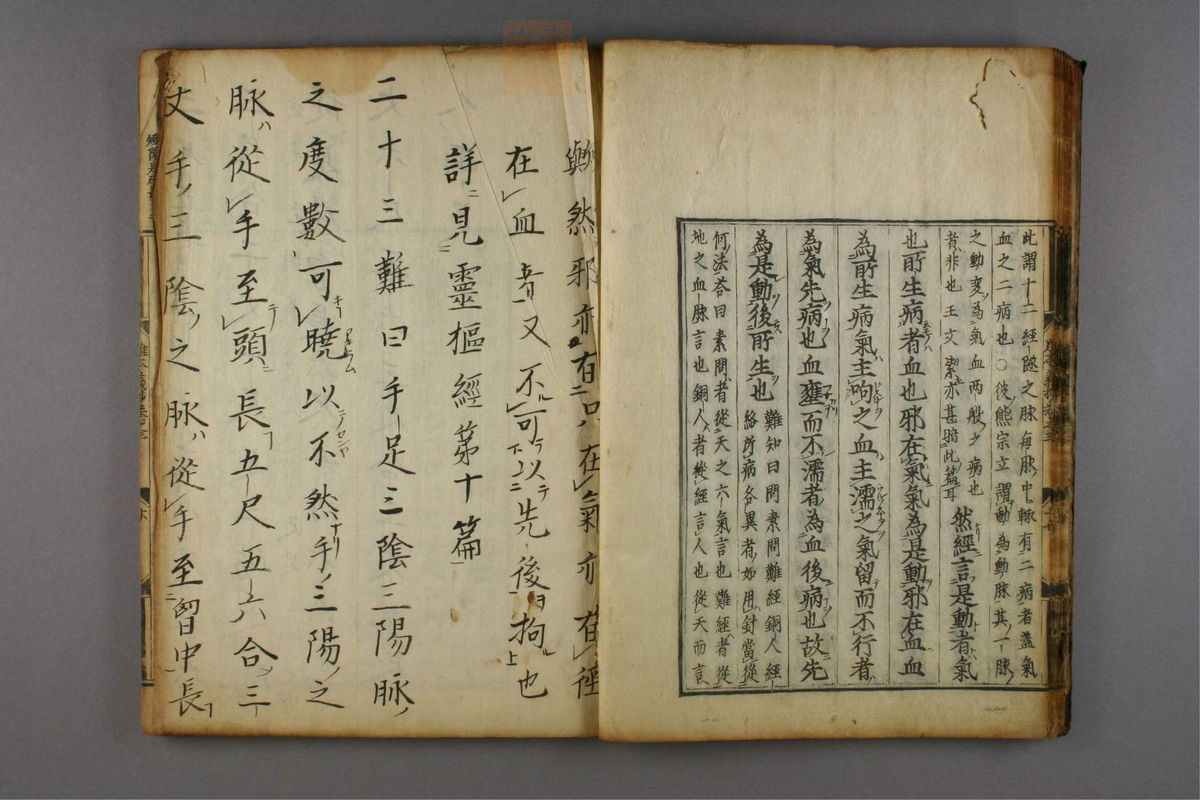 此謂十二經隧之脉每脉中輙有二病者蓋氣
血之二病也○彼熊宗立謂動為動脉其一脉
之動変為氣血両般之病也
者非也王文潔亦甚暗此篇耳
然經言是動者氣
也所生病者血也邪在氣氣為是動邪在血血
為所生病氣主呴之血主濡之氣留而不行者
為氣先病也血壅而不濡者為血後病也故先
為是動後所生也
難知曰問素問難經銅人經
絡所病各異者如用針當從
何法荅曰素問者從天之六氣言也難經者從
地之血脉言也銅人者從經言人也從天而言
然邪亦有只在氣亦在徑
在血者又不可以先後拘也
詳見靈樞經第十篇
二十三難曰手足三陰三陽脉
之度數可曉以不然手三陽之
脉從手至頭長五尺五六合三
丈手三陰之脉從手至胷中長